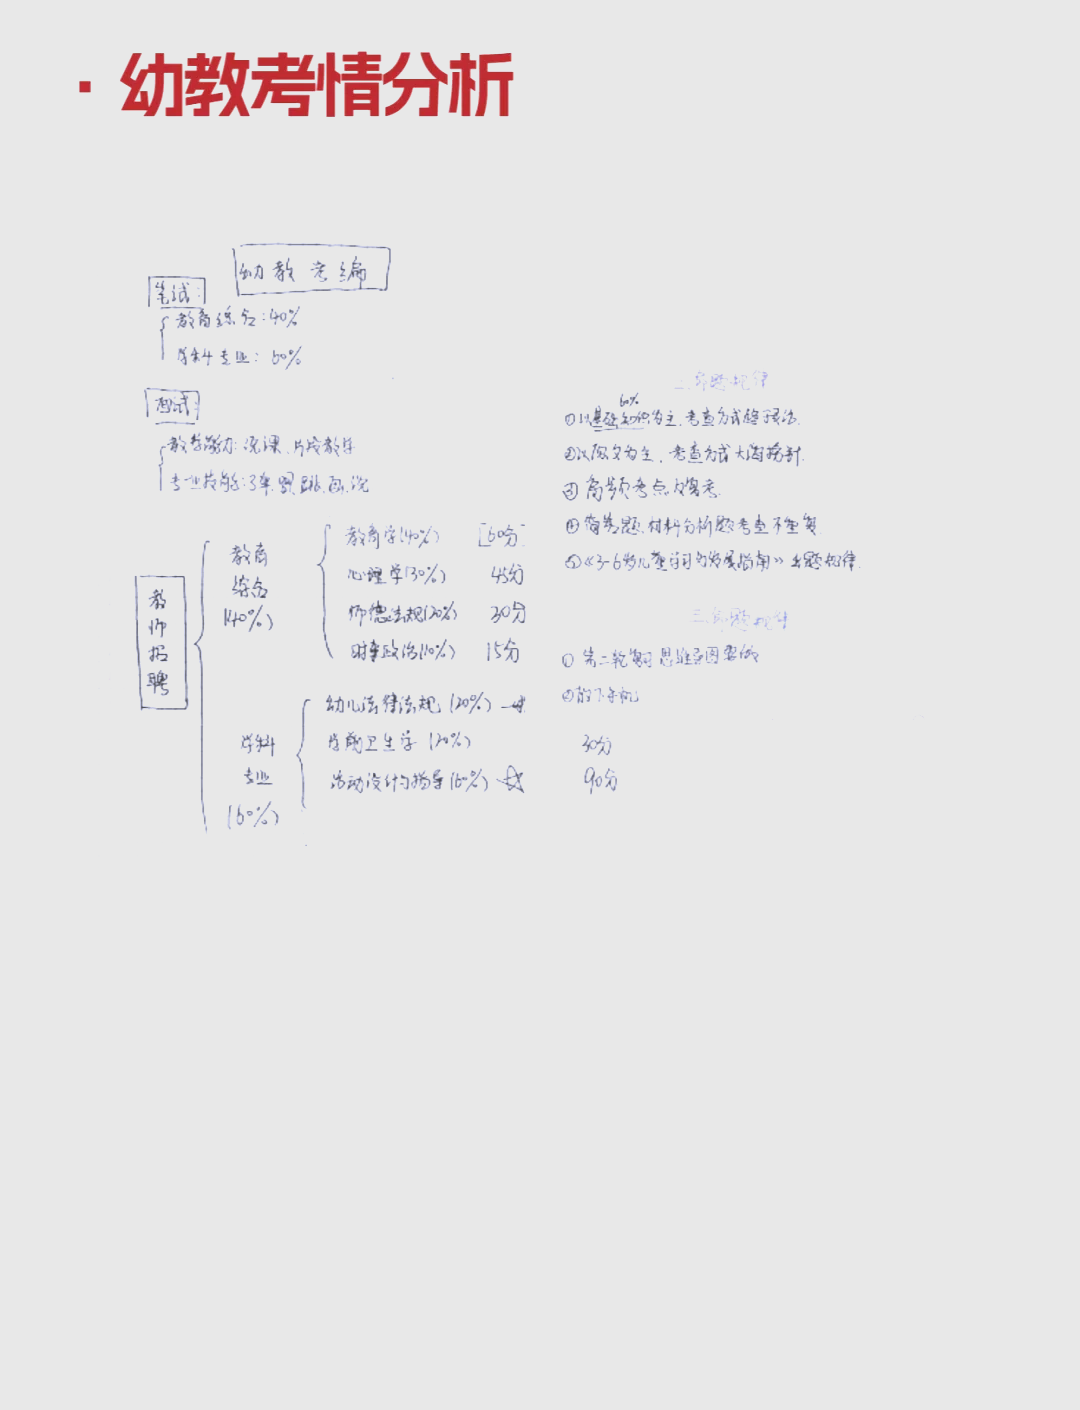 · 幼教考情分析
幼教考编
笔试:
教育综合:40%
学科专业:60%
面试:
教学能力:说课、片段教学
专业技能:弹,唱,跳,画,说
教师招聘
教育综合(40%)
教育学(40%) [60分]
心理学(30%) 45分
师德法规(20%) 30分
时事政治(10%) 15分
学科专业(60%)
幼儿法律法规(20%)
学前卫生学(20%) 30分
活动设计与指导(60%) ☆ 90分
二.命题规律
60%
①以基础知识为主,考查方式灵活.
②以原文为主,考查方式大海捞针.
③高频考点反复考.
④简答题,材料分析题考查不重复.
⑤《3-6岁儿童学习与发展指南》出题规律.
三.命题规律
①第二轮复习 思维导图要做
②放下手机